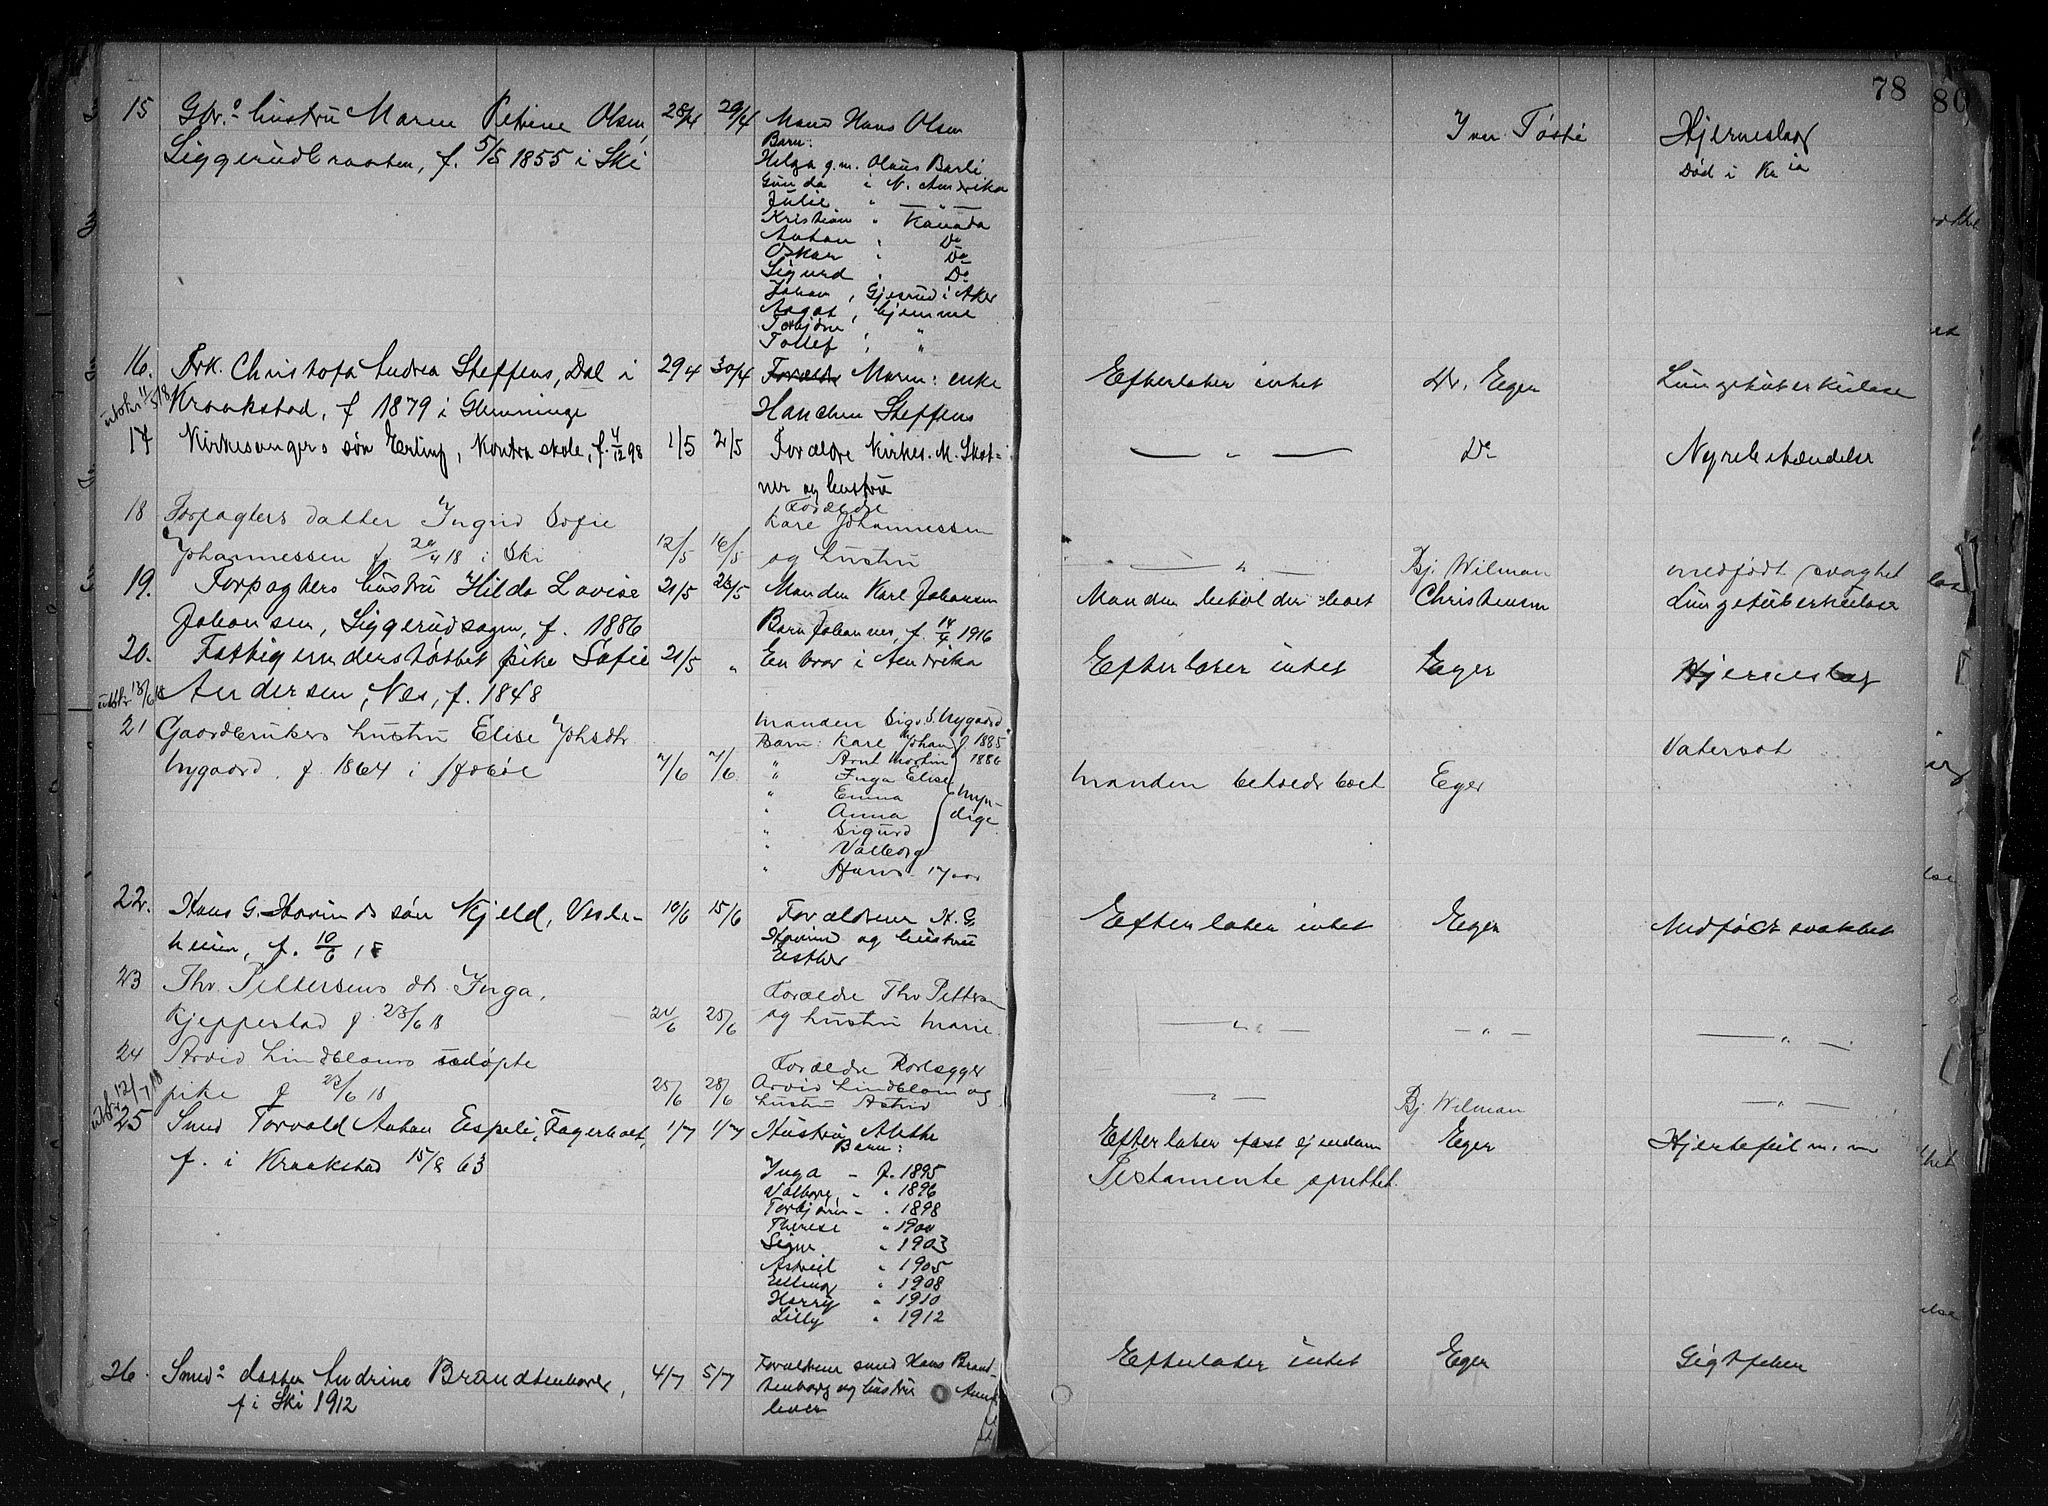 78
15 Gbr.s hustru Maren Petrine Olsen, 28/4 29/4 Mand Hans Olsen Iver Tøsti Hjerneslag
Siggerudbraaten, f. 5/5 1855 i Ski Barn: Død i Kr.ia
Helga g.m. Olaus Barli.
Gunda i N. Amerika
Julie " — " —
Kristian " Kanada
Anton " Do
Oskar " Do
Sigurd " Do
Johan, Gjesrud i Aker
Aagot, hjemme
Torbjørn " "
Tollef " "
16. Frk. Christofa Andrea Steffens, Dal i 29/4 30/4 Foreldre Moren: enke Efterlater intet Dr. Eger Lungetuberkulose
Kraakstad, f 1879 i Glemminge Hanchen Steffens
17 Kirkesangers søn Erling, Kontra skole, f. 4/12 98 1/5 2/5 Forældre Kirkes. M. Skot- — " — Do Nyrebetændelse
ner og hustru
18 Forpagters datter Ingrid Sofie Forældre
Johannessen f 20/4 18 i Ski 12/5 16/5 Karl Johannessen
og hustru — " — Bj. Wilman medfødt svaghet
19. Forpagters hustru Hilda Lovise 21/5 23/5 Manden Karl Johansen Manden beholder boet Christensen Lungetuberkulose
Johansen, Siggerudsagen, f. 1886 Barn Johannes, f. 14/4 1916
20. Fattigunderstøttet pike Sofie 21/5 " En bror i Amerika Efterlater intet Eger Hjerneslag
Andersen, Nes, f. 1848
21 Gaardbrukers hustru Elise Johsdtr Manden Sigv. S. Nygaard
Nygaard f. 1864 i Hobøl 7/6 7/6 Barn: Karl Johan f 1885 Manden behoedr boet Eger Vatersot
" Arnt Martin 1886
" Inga Elise
" Emma myn-
" Anna dige
" Sigurd
" Valborg
" Hans 17 aar
22. Hans G. Hovinds søn Kjeld, Vesle- 10/6 15/6 Forældrene H. G. Efterlater intet Eger Medfødt svakhet
heim, f. 10/6 18 Hovind og hustru
Esther
23 Thv. Pettersens dtr Inga, Forældre Thv Petterson
Kjeppestad f. 23/6 18 24/6 25/6 og hustru Marie. — " — — " — — " —
24 Arvid Lindbloms udøpte Forældre Rørlægger
pike f 22/6 18 25/6 28/6 Arvid Lindblom og — " — Bj. Wilman — " —
hustru Astrid
25 Smed Torvald Anton Espeli, Fagerholt, 1/7 1/7 Hustru Alethe Efterlater fast eiendom Eger Hjertefeil m. m
f. i Kraakstad 15/8 63 Barn: Testamente sputtet.
Inga - f. 1895
Valborg " " 1896
Torbjørn - " 1898
Therese " 1900
Signe " 1903
Astrid " 1905
Elling " 1908
Harry " 1910
Lilly " 1912
26. Smeds datter Andrine Brandtenborg, 4/7 5/7 Forældrene smed Hans Brand- Efterlater intet Eger Gigtfeber
f i Ski 1912 tenborg og hustru
lever